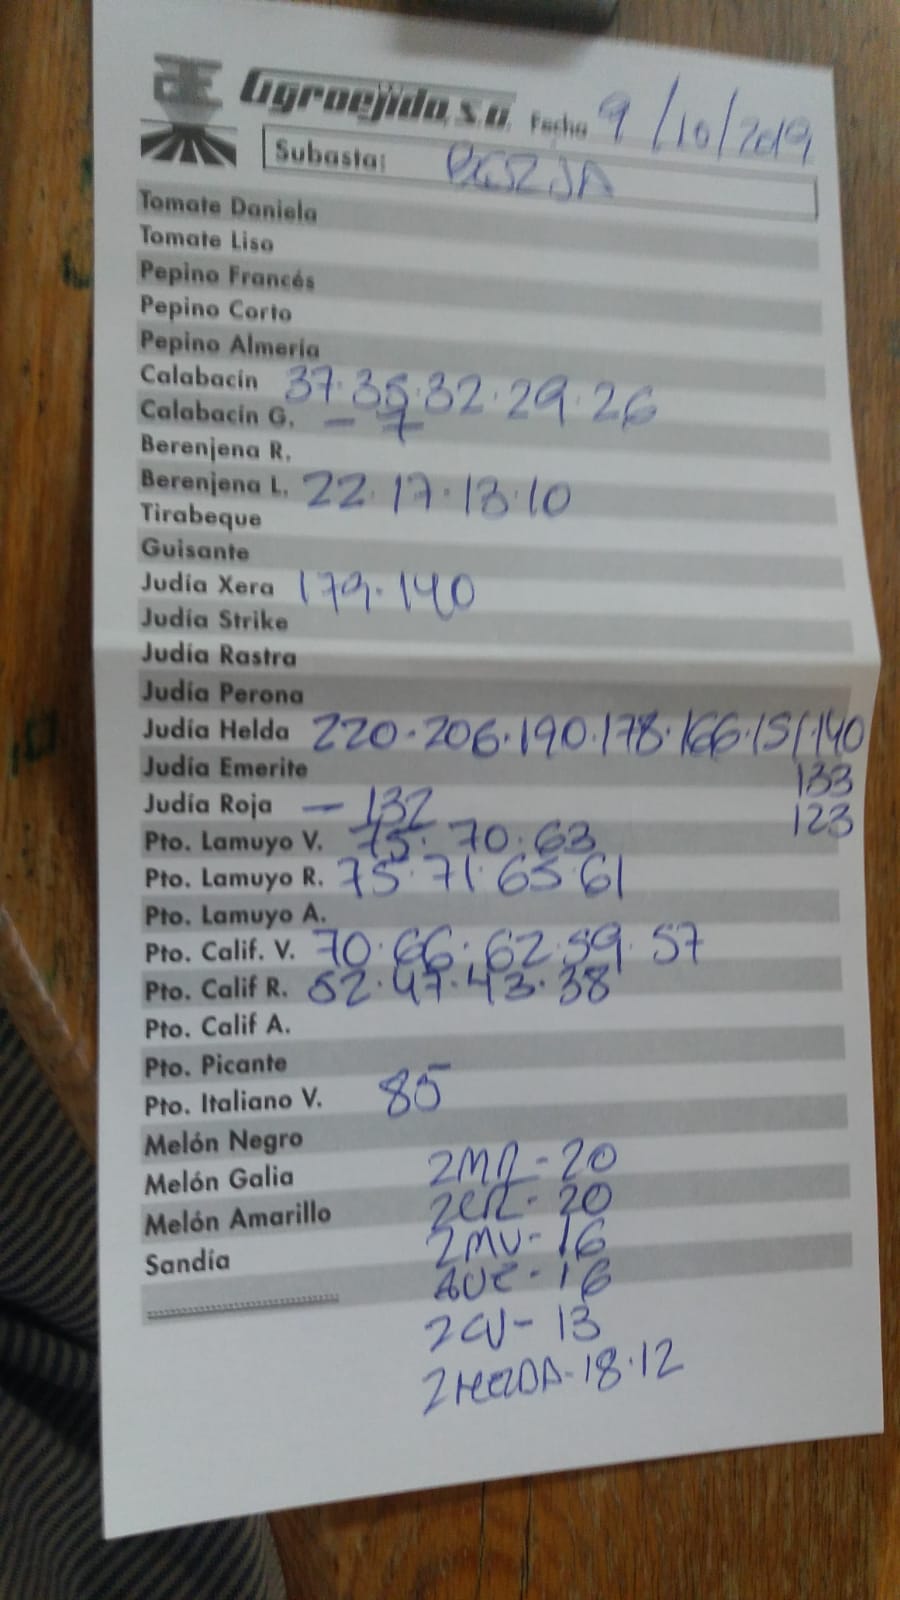 Agroejido, s.a. Fecha 9/10/2019
Subasta: BERJA
Tomate Daniela
Tomate Liso
Pepino Francés
Pepino Corto
Pepino Almería
Calabacín 37.35.32.29.26
Calabacín G. - 7
Berenjena R.
Berenjena L. 22.17.13.10
Tirabeque
Guisante
Judía Xera 179.140
Judía Strike
Judía Rastra
Judía Perona
Judía Helda 220.206.190.178.166.151.140
Judía Emerite 133
Judía Roja - 132 123
Pto. Lamuyo V. 75.70.63
Pto. Lamuyo R. 75.71.65.61
Pto. Lamuyo A.
Pto. Calif. V. 70.66.62.59.57
Pto. Calif R. 52.47.43.38
Pto. Calif A.
Pto. Picante
Pto. Italiano V. 85
Melón Negro
Melón Galia 2MR-20
Melón Amarillo 2CR-20
2MV-16
Sandía
-16
2CV-13
-18.12